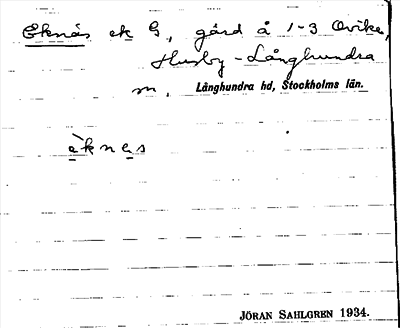 Eknäs ek G, gård å 1-3 Ovika,
Husby-Långhundra
m, Långhundra hd, Stockholms län.
èknes
JÖRAN SAHLGREN 1934.